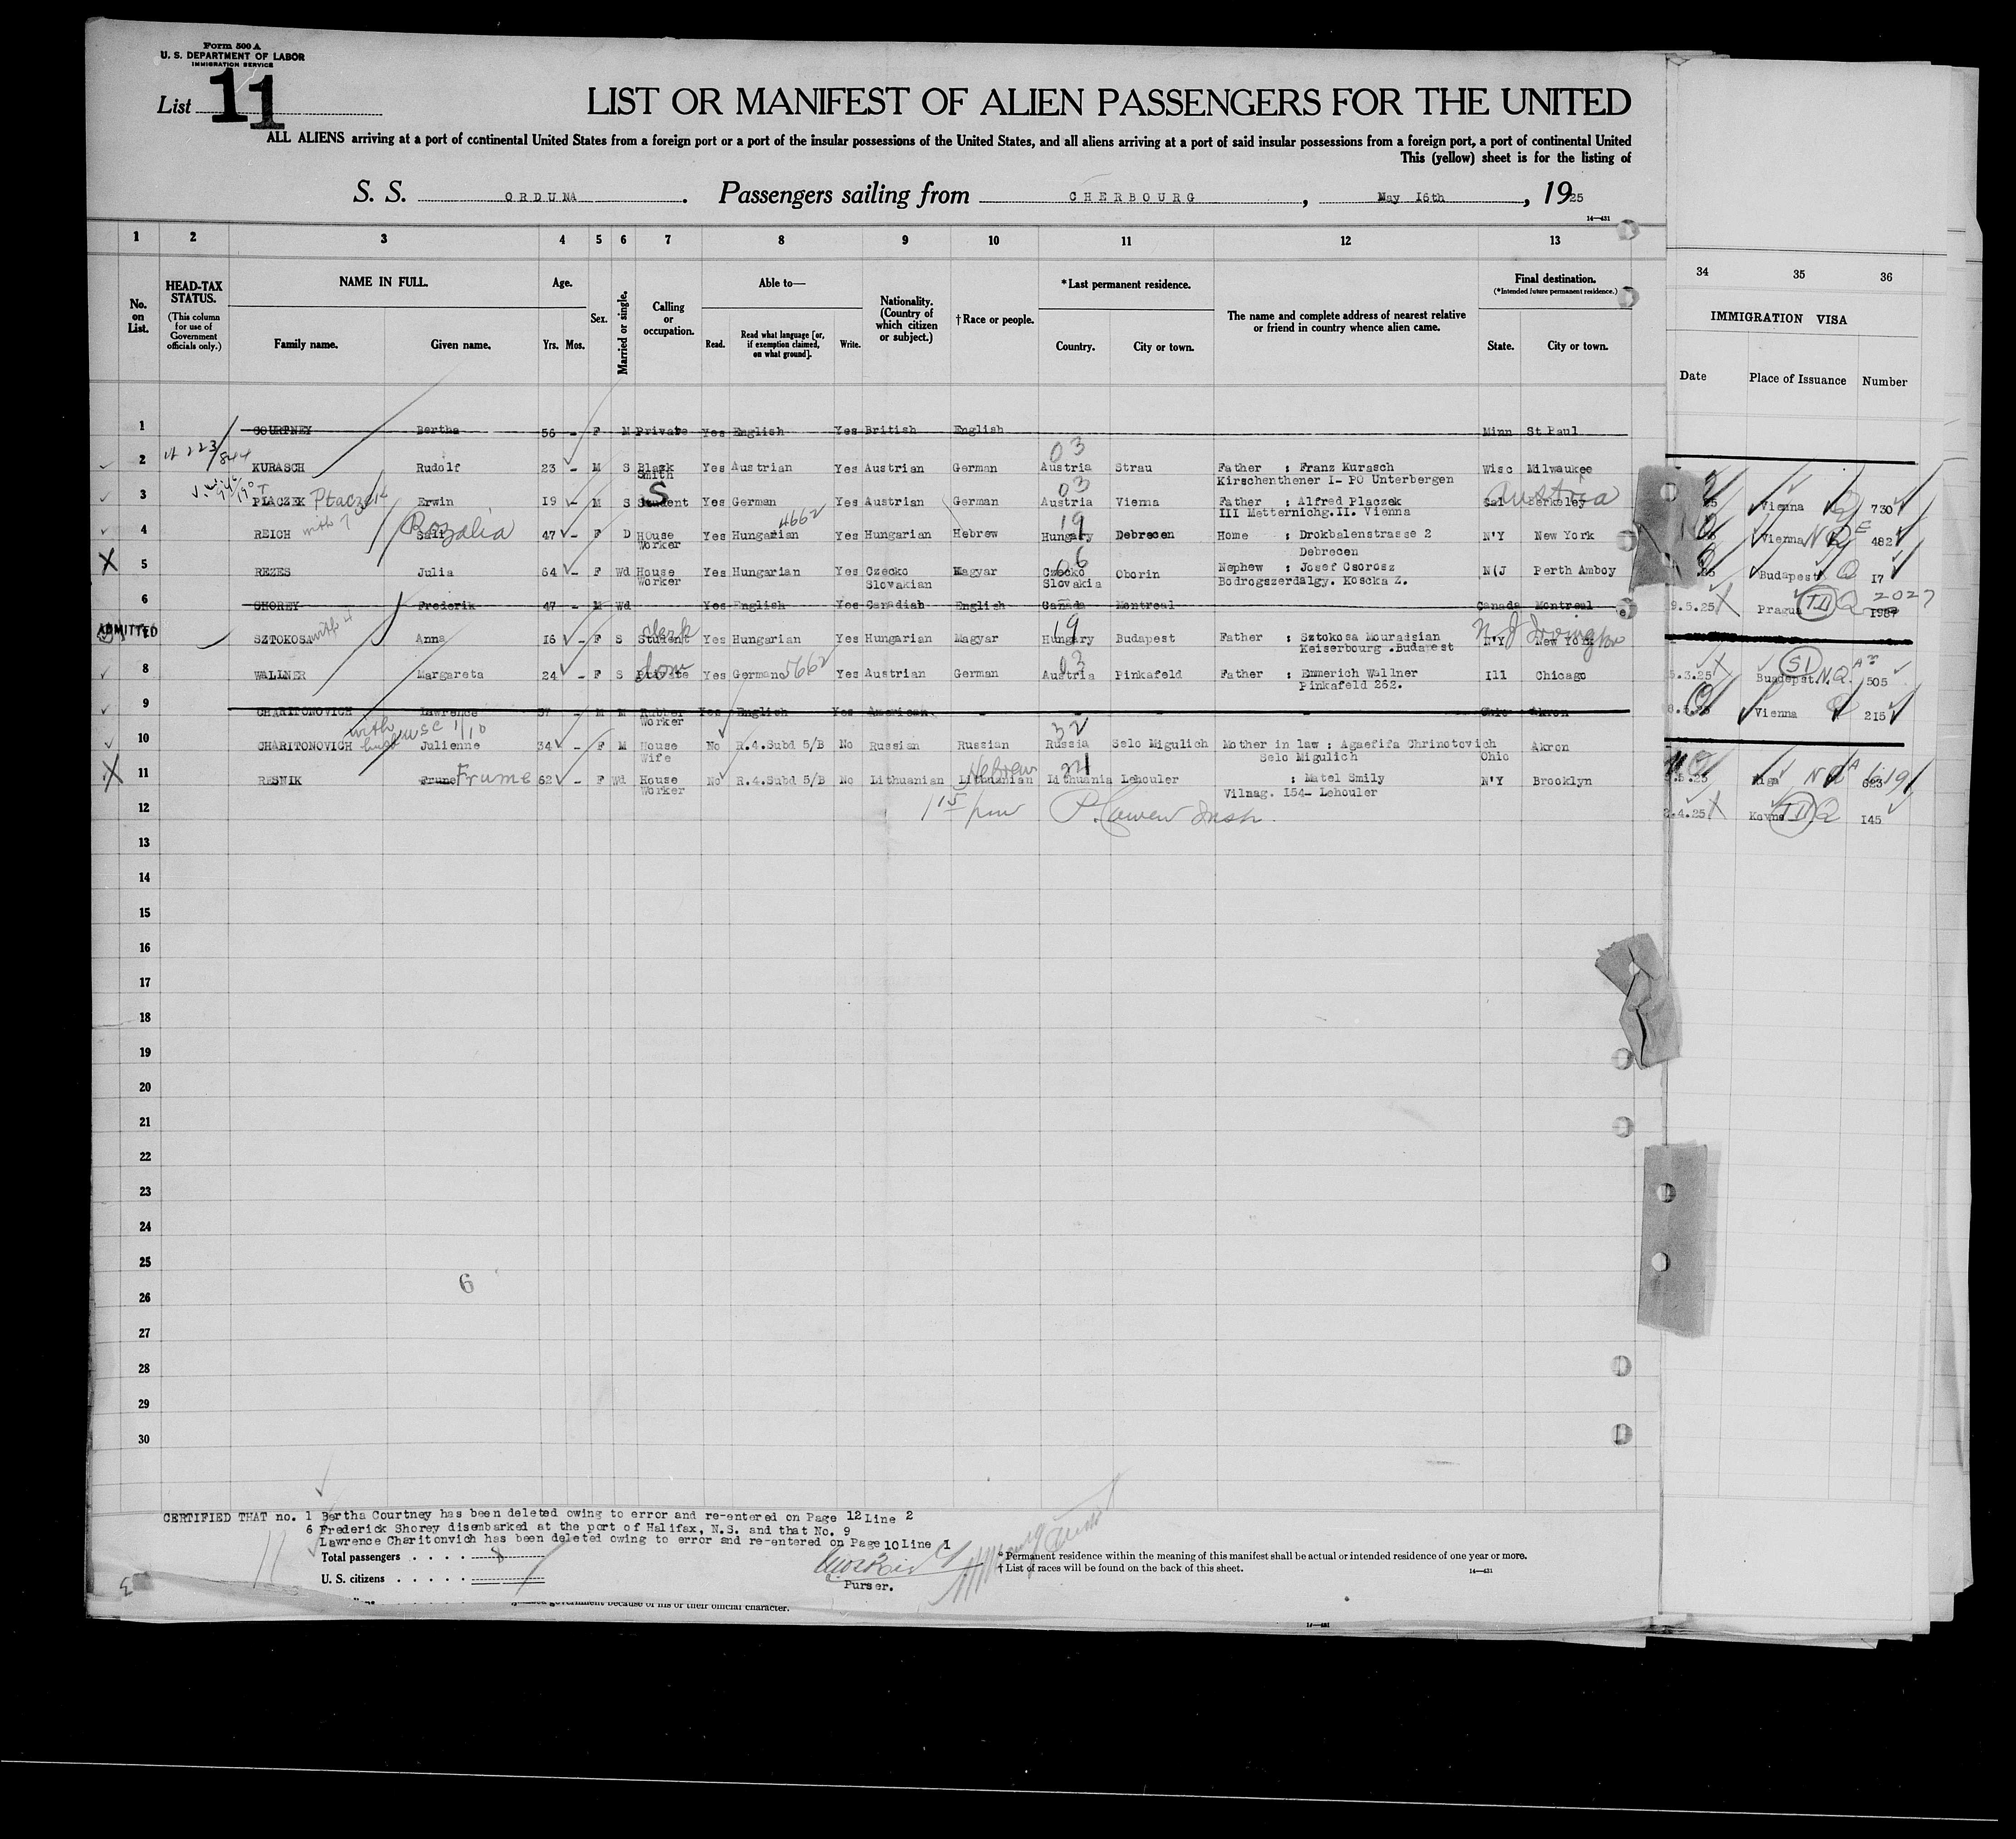 Form 500 A
U. S. DEPARTMENT OF LABOR
IMMIGRATION SERVICE
List 11
LIST OR MANIFEST OF ALIEN PASSENGERS FOR THE UNITED
ALL ALIENS arriving at a port of continental United States from a foreign port or a port of the insular possessions of the United States, and all aliens arriving at a port of said insular possessions from a foreign port, a port of continental United
This (yellow) sheet is for the listing of
S. S. ORDUNA. Passengers sailing from CHERBOURG, May 16th, 1925
14—431
1 2 3 4 5 6 7 8 9 10 11 12 13 34 35 36
No. on List.
HEAD-TAX STATUS. (This column for use of Government officials only.)
NAME IN FULL. Family name. Given name.
Age. Yrs. Mos.
Sex.
Married or single.
Calling or occupation.
Able to— Read. Read what language [or, if exemption claimed, on what ground]. Write.
Nationality. (Country of which citizen or subject.)
† Race or people.
* Last permanent residence. Country. City or town.
The name and complete address of nearest relative or friend in country whence alien came.
Final destination. (*Intended future permanent residence.) State. City or town.
IMMIGRATION VISA
Date Place of Issuance Number
1 COURTNEY Bertha 56 - F M Private Yes English Yes British English Minn St Paul
03
2 KURASCH Rudolf 23 - M S Black Smith Yes Austrian Yes Austrian German Austria Strau Father : Franz Kurasch Kirschenthener I- PO Unterbergen Wisc Milwaukee
03
3 PLACZEK Ptaczek Erwin 19 - M S Student S Yes German Yes Austrian German Austria Vienna Father : Alfred Placzek III Metternichg.II. Vienna Cal Berkeley Austria Vienna 730
with 7
4662
19
4 REICH Sali Rozalia 47 - F D House Worker Yes Hungarian Yes Hungarian Hebrew Hungary Debrecen Home : Drokbalenstrasse 2 Debrecen N'Y New York Vienna NQ E 482
06
5 REZES Julia 64 - F Wd House Worker Yes Hungarian Yes Czecko Slovakian Magyar Czecko Slovakia Oborin Nephew : Josef Csorosz Bodrogszerdalgy. Koscka Z. N(J Perth Amboy Budapest Q 17
6 SHOREY Frederik 47 - M Wd Yes English Yes Canadiab English Canada Montreal Canada Montreal 9.5.25 Prague Q 1987 2027
ADMITTED
19
7 SZTOKOSA with 4 Anna 16 - F S Student clerk Yes Hungarian Yes Hungarian Magyar Hungary Budapest Father : Sztokosa Mouraisian Keiserbourg .Budapest N'Y New York N J Irvington
03
8 WALLNER Margareta 24 - F S Private dom Yes German 5662 Yes Austrian German Austria Pinkafeld Father : Emmerich Wallner Pinkafeld 262. Ill Chicago 5.3.25 SI Budapest N.Q. 505
9 CHARITONOVICH Lawrence 37 - M M Rubber Worker Yes English Yes American - - - - Ohio Akron Vienna 215
with husb USC 1/10
32
10 CHARITONOVICH Julienne 34 - F M House Wife No R.4.Subd 5/B No Russian Russian Russia Selo Migulich Mother in law : Agaefifa Chrinotovich Selo Migulich Ohio Akron
Hebrew
21
11 RESNIK Frune Frume 62 - F Wd House Worker No R.4.Subd 5/B No Lithuanian Lithuanian Lithuania Lehouler : Matel Smily Vilnag. 154- Lehouler N'Y Brooklyn 5.25 Riga NQ A 623
12 P. Cowen Insp. 4.25 Kovno Q 145
13
14
15
16
17
18
19
20
21
22
23
24
25
6
26
27
28
29
30
CERTIFIED THAT no. 1 Bertha Courtney has been deleted owing to error and re-entered on Page 12 Line 2
6 Frederick Shorey disembarked at the port of Halifax, N.S. and that No. 9
Lawrence Charitonvich has been deleted owing to error and re-entered on Page 10 Line 1
Total passengers . . . . 8
U. S. citizens . . . . .
Purser.
* Permanent residence within the meaning of this manifest shall be actual or intended residence of one year or more.
† List of races will be found on the back of this sheet.
14—431
government because of his or their official character.
14—431